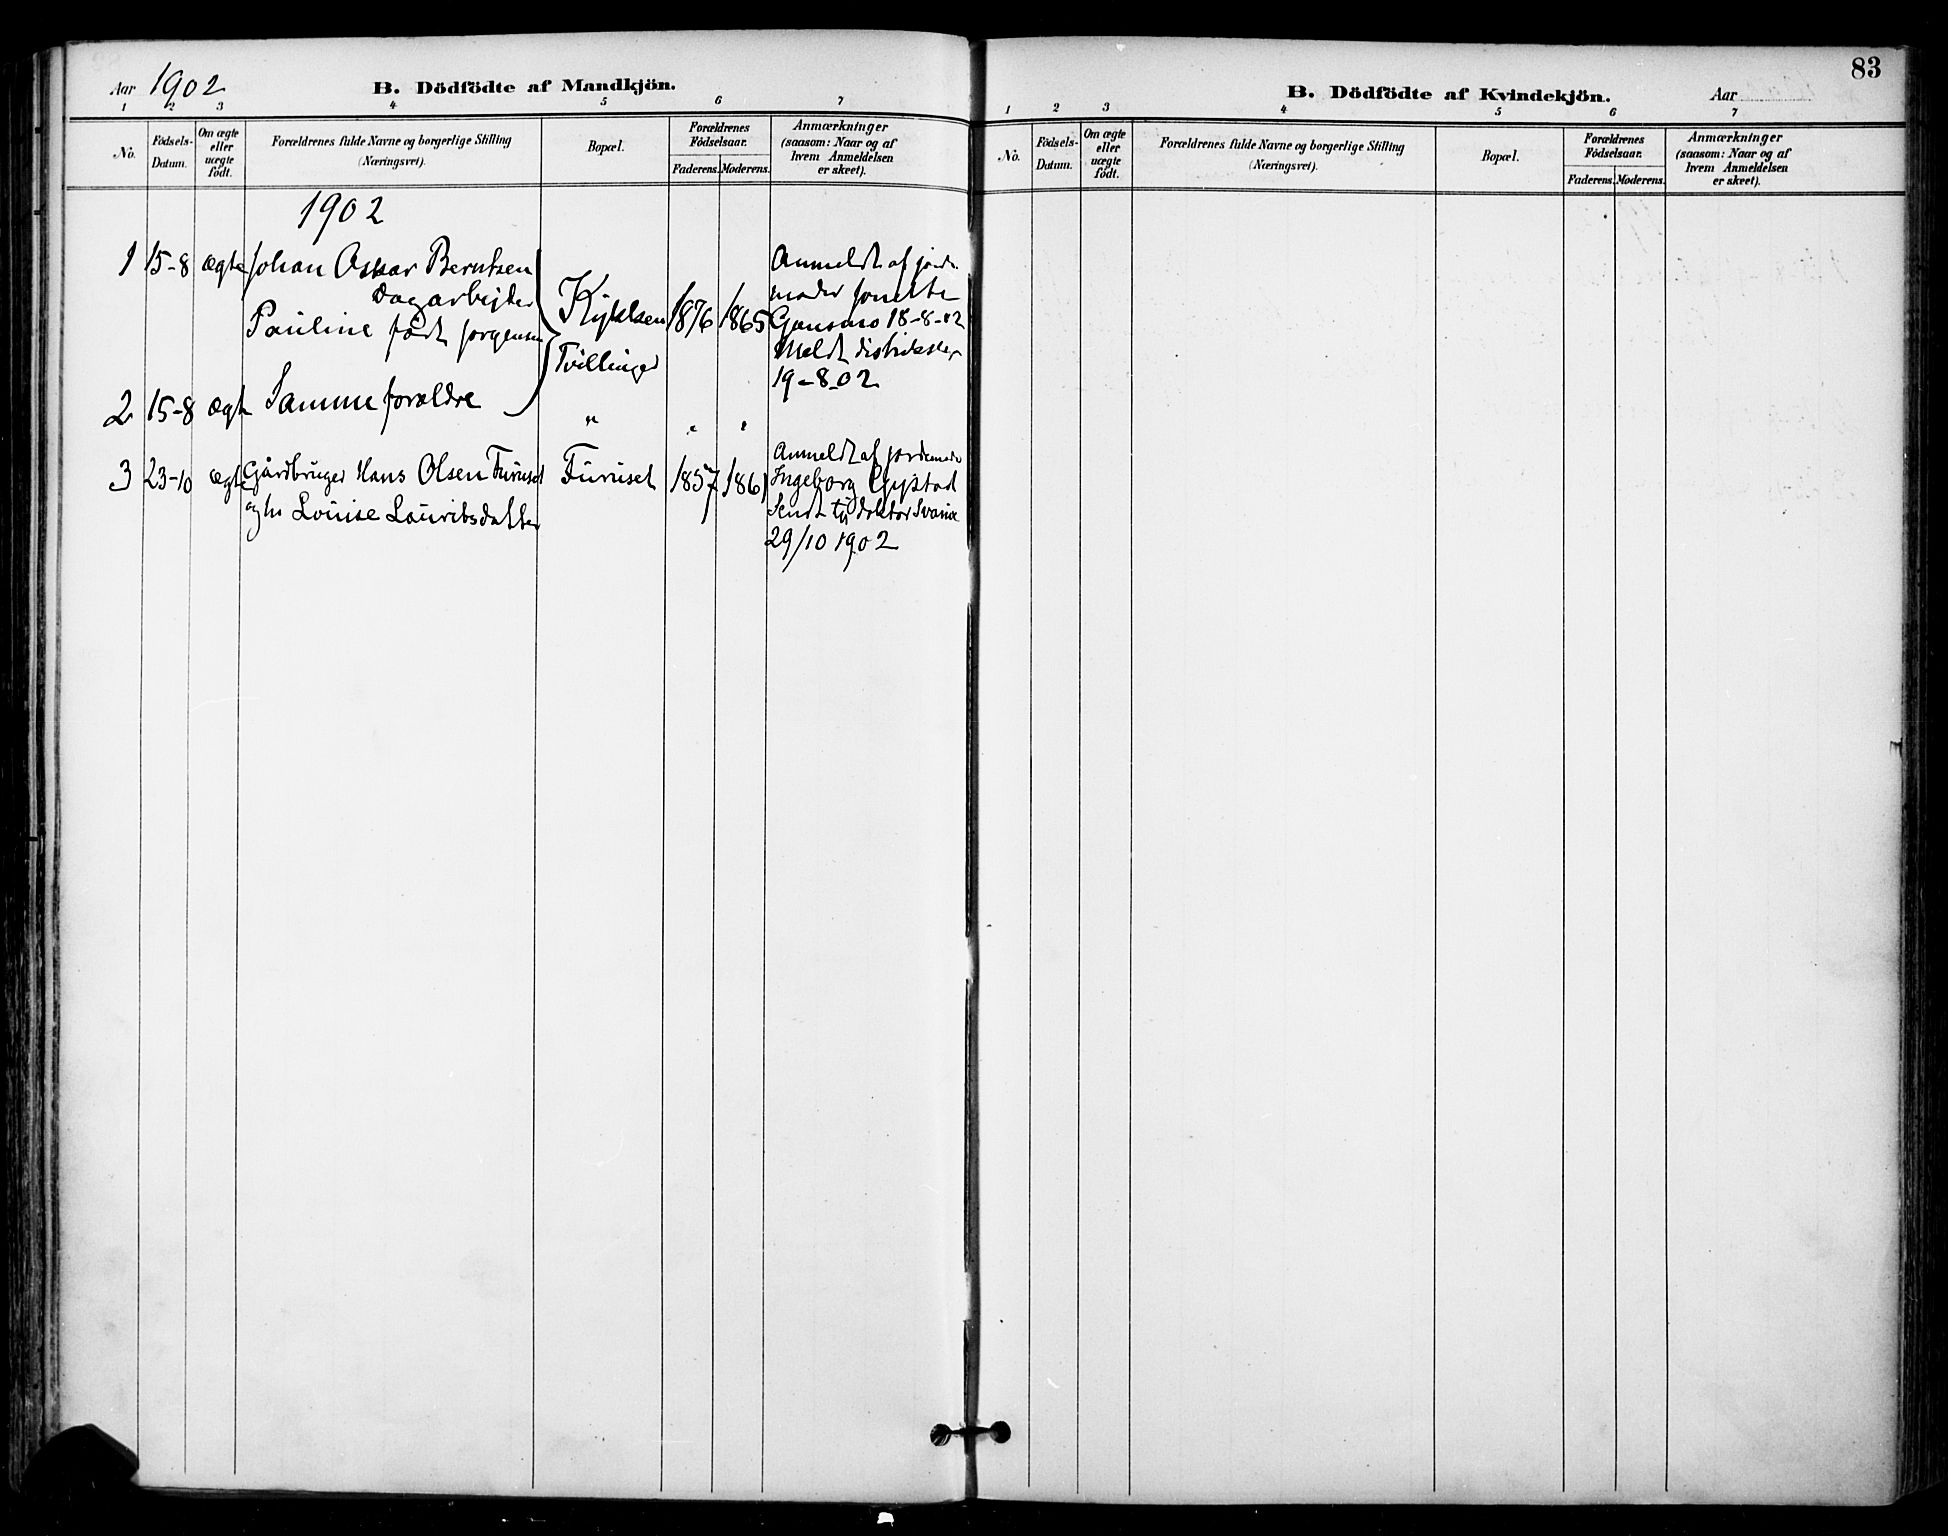 Aar 1902 B. Dödfödte af Mandkjön.
1 2 3 4 5 6 7
No.
Födsels-Datum.
Om ægte eller uægte födt.
Forældrenes fulde Navne og borgerlige Stilling (Næringsvei).
Bopæl.
Forældrenes Födselsaar.
Faderens. Moderens.
Anmærkninger (saasom: Naar og af hvem Anmeldelsen er skeet).
1902
1 15-8 ægte Johan Oskar Berntsen
dagarbejder
Pauline født Jørgensen
Tvillinger
1876 1865
Anmeldt af jorde-
moder
18-8-02
Meldt
19-8-02
2 15-8 ægte Samme forældre
" " "
3 23-10 ægte Gårdbruger Hans Olsen Furuset
og hu Louise Lauritsdatter
Furuset 1857 1861
Anmeldt af jordemoder
Ingeborg
Sendt til doktor
29/10 1902
83
B. Dödfödte af Kvindekjön. Aar
1 2 3 4 5 6 7
No.
Födsels-Datum.
Om ægte eller uægte födt.
Forældrenes fulde Navne og borgerlige Stilling (Næringsvei).
Bopæl.
Forældrenes Födselsaar.
Faderens. Moderens.
Anmærkninger (saasom: Naar og af hvem Anmeldelsen er skeet).